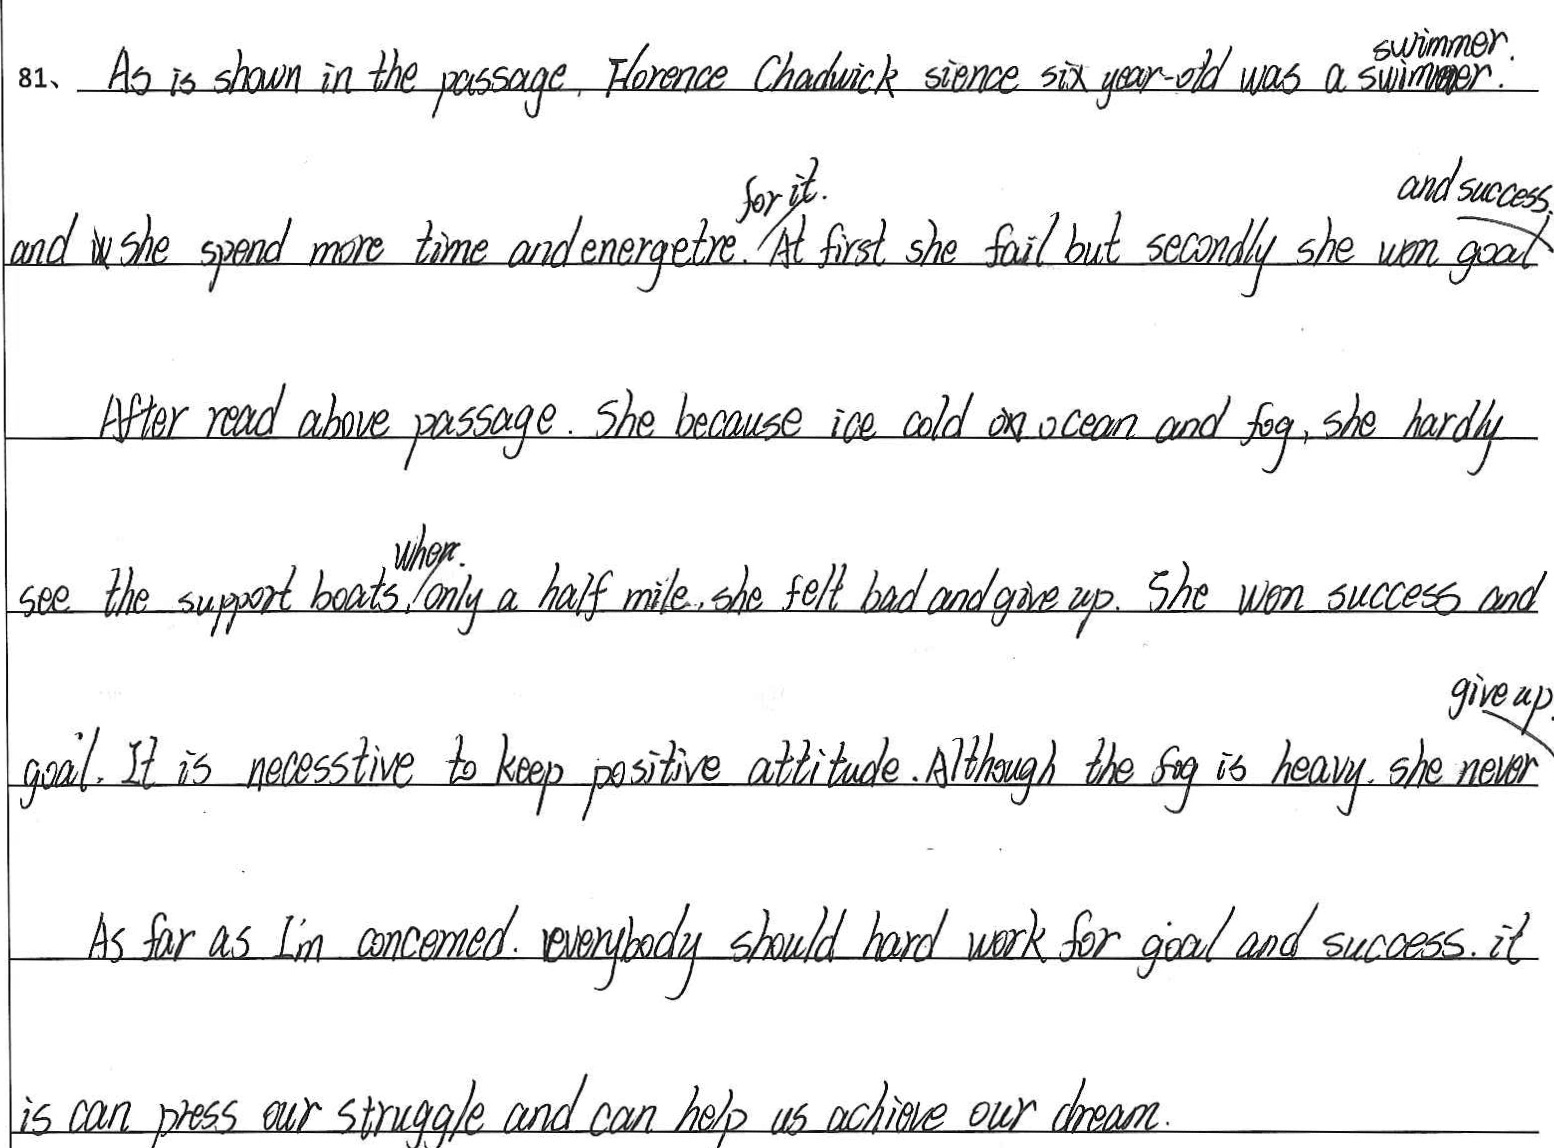 81、 As is shown in the passage, Florence Chadwick sience six year-old was a swimmer.
swimmer.
and she spend more time and energetre. for it. At first she fail but secondly she won goal and success.
After read above passage. She because ice cold on ocean and fog, she hardly
see the support boats, when. only a half mile, she felt bad and give up. She won success and
goal. It is necesstive to keep positive attitude. Although the fog is heavy. she never give up.
As far as I'm concerned. everybody should hard work for goal and success. it
is can press our struggle and can help us achieve our dream.